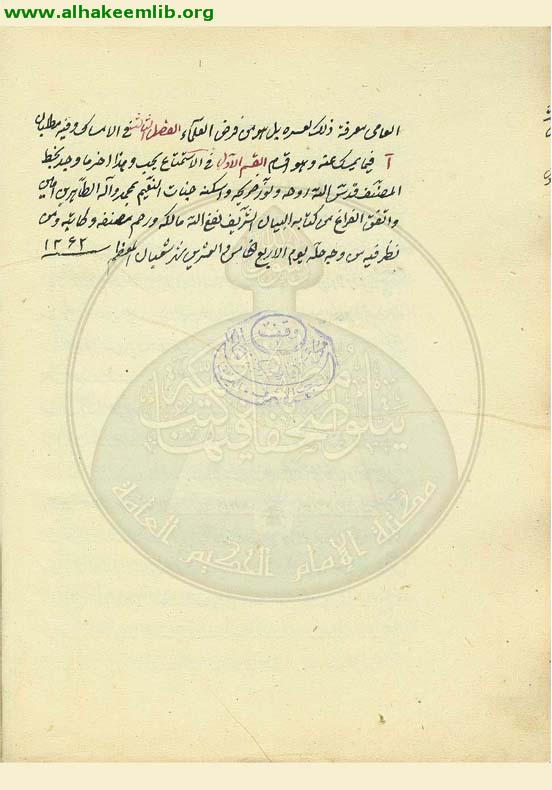 www.alhakeemlib.org
العامى معرفة ذلك لعسره بل هو من فرض العلماء الفصل الثالث فى الامساك وفيه مطلبان
آ فيما يمسك عنه وهو اقسام القسم الاول فى الاستمتاع يجب وهذا اخر ما وجد بخط
المصنف قدس الله روحه ونور ضريحه واسكنه جنات النعيم بمحمد واله الطاهرين امين
واتفق الفراغ من كتابة البيان الشريف نفع الله مالكه ورحم مصنفه وكاتبه ومن
نظر فيه من وجه حله يوم الاربع خامس والعشرين شهر شعبان المعظم ١٣٦٢
وقف
يتلو صحفا مطهرة فيها كتب قيمة
مكتبة الإمام الحكيم العامة